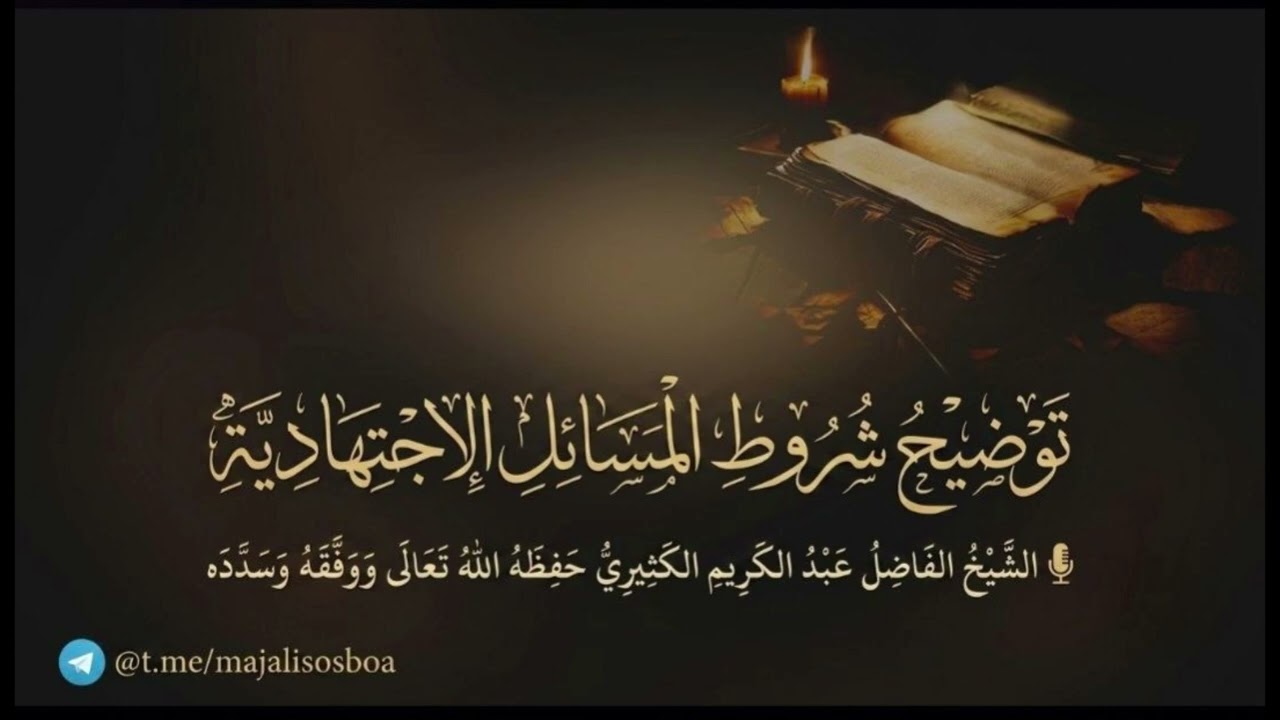 تَوْضِيْحُ شُرُوطِ الْمَسَائِلِ الإِجْتِهَادِيَّةِ
الشَّيْخُ الفَاضِلُ عَبْدُ الكَرِيمِ الكَثِيرِيُّ حَفِظَهُ اللهُ تَعَالَى وَوَفَّقَهُ وَسَدَّدَه
@t.me/majalisosboa